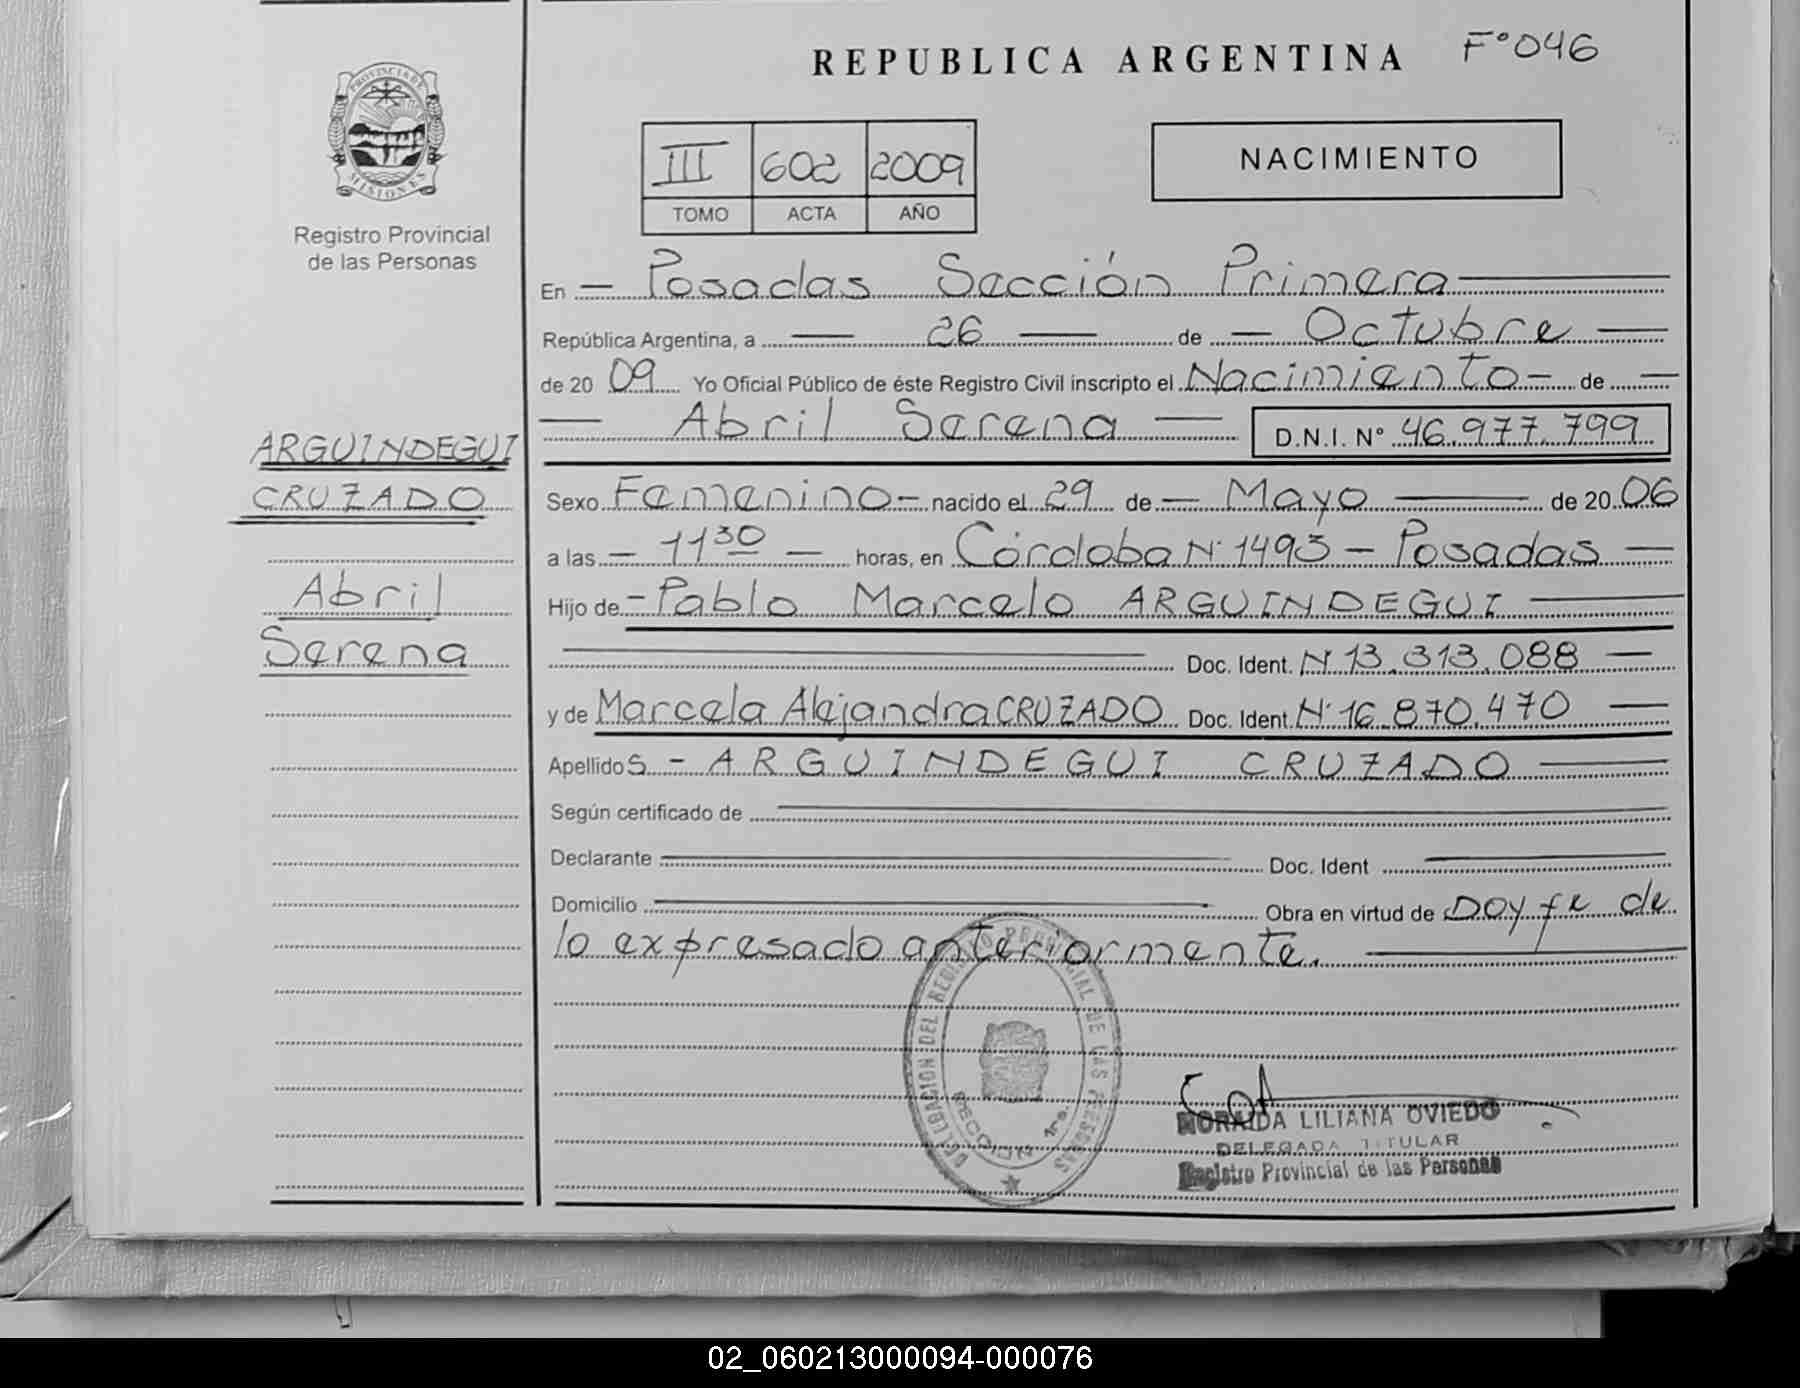 REPUBLICA ARGENTINA F° 046
PROVINCIA DE
MISIONES
Registro Provincial
de las Personas
III 602 2009
TOMO ACTA AÑO
NACIMIENTO
En — Posadas Sección Primera
República Argentina, a — 26 — de — Octubre —
de 20 09 Yo Oficial Público de éste Registro Civil inscripto el Nacimiento - de —
— Abril Serena — D.N.I. N° 46.977.799
ARGUINDEGUI
CRUZADO
Abril
Serena
Sexo Femenino - nacido el 29 de — Mayo — de 20 06
a las — 11 30 — horas, en Córdoba N° 1493 - Posadas —
Hijo de - Pablo Marcelo ARGUINDEGUI —
Doc. Ident. N° 13.313.088 —
y de Marcela Alejandra CRUZADO Doc. Ident. N° 16.870.470 —
Apellidos - ARGUINDEGUI CRUZADO —
Según certificado de
Declarante Doc. Ident
Domicilio Obra en virtud de Doy fe de
lo expresado anteriormente.
DELEGACION DEL REGISTRO PROVINCIAL DE LAS PERSONAS
SECCION 1ra.
NORAIDA LILIANA OVIEDO
DELEGADA TITULAR
Registro Provincial de las Personas
02_060213000094-000076